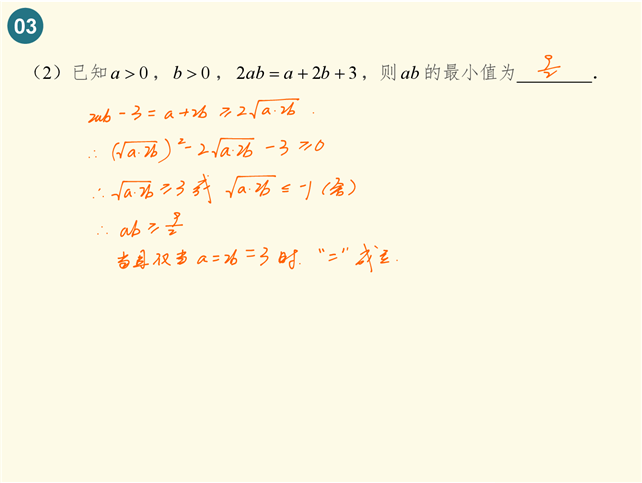 03
（2）已知a>0，b>0，2ab=a+2b+3，则ab的最小值为 9/2 ．
2ab-3=a+2b≥2√(a·2b).
∴ (√(a·2b))²-2√(a·2b)-3≥0
∴ √(a·2b)≥3或 √(a·2b)≤-1（舍）
∴ ab≥9/2
当且仅当a=2b=3时."="成立.